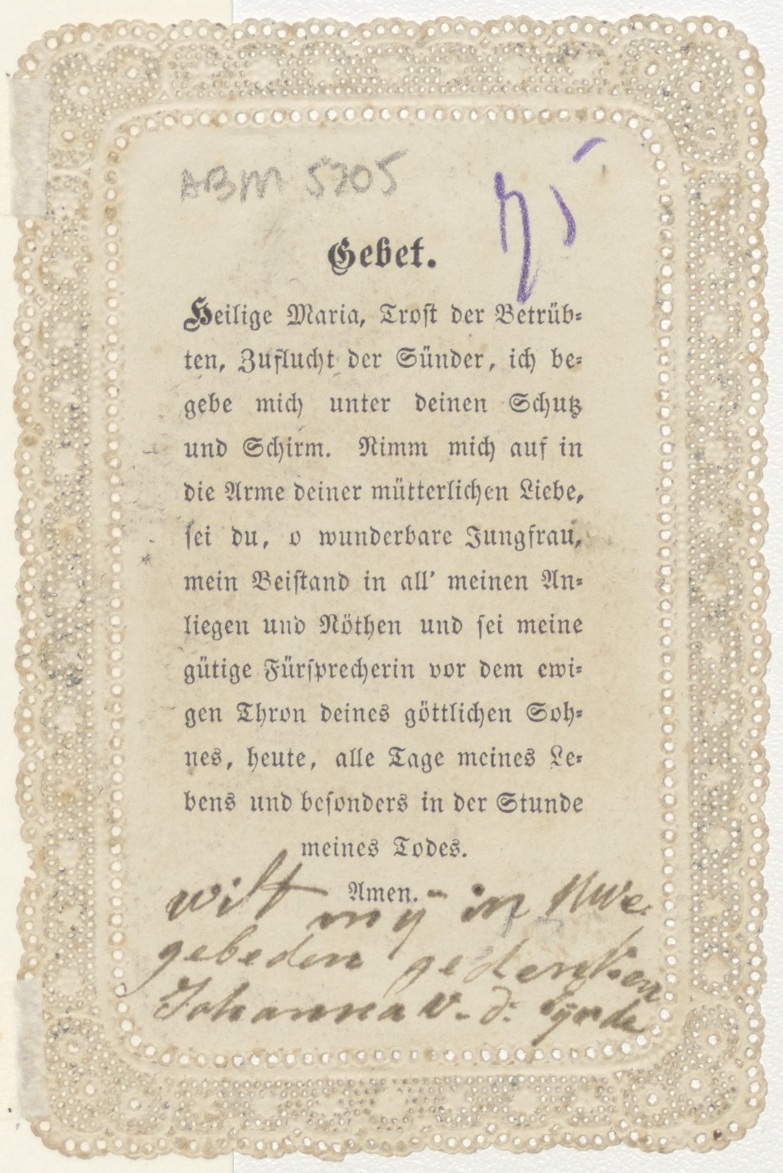 ABM 5705
75
Gebet.
Heilige Maria, Trost der Betrüb-
ten, Zuflucht der Sünder, ich be-
gebe mich unter deinen Schutz
und Schirm. Nimm mich auf in
die Arme deiner mütterlichen Liebe,
sei du, o wunderbare Jungfrau,
mein Beistand in all' meinen An-
liegen und Nöthen und sei meine
gütige Fürsprecherin vor dem ewi-
gen Thron deines göttlichen Soh-
nes, heute, alle Tage meines Le-
bens und besonders in der Stunde
meines Todes.
Amen.
wilt mij in uwe
gebeden gedenken
Johanna v. d.